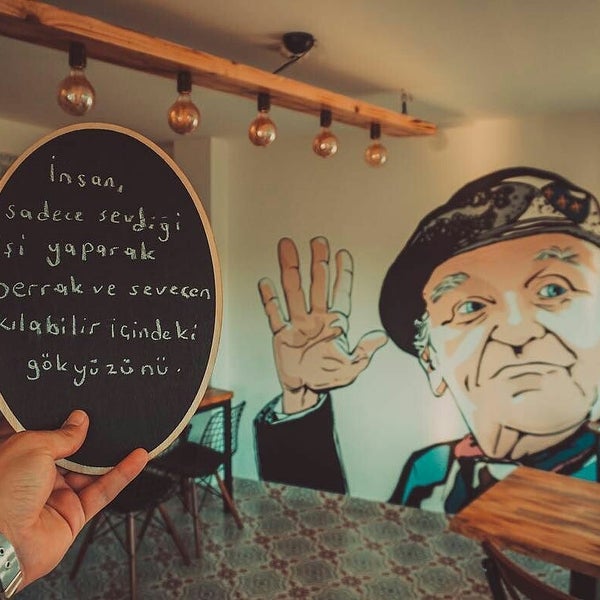 İnsan,
sadece sevdiği
işi yaparak
berrak ve sevecen
kılabilir içindeki
gökyüzünü.